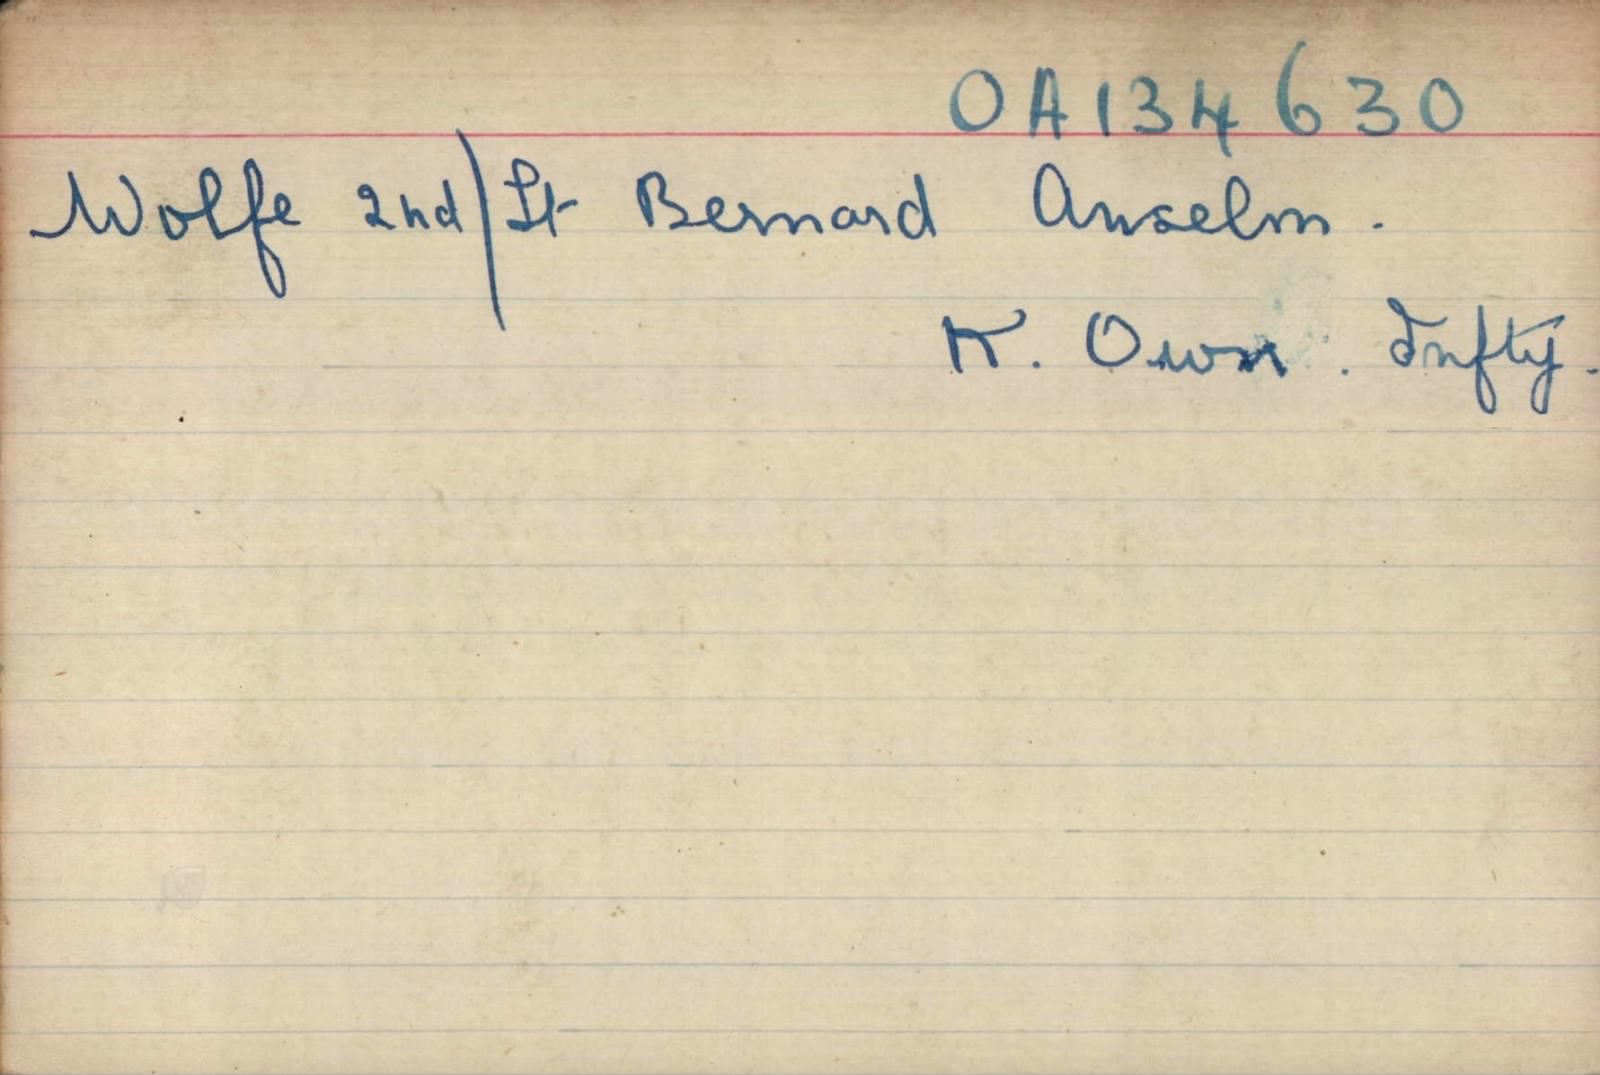 OA134630
Wolfe 2nd/Lt Bernard Anselm.
K. Own. Infty.